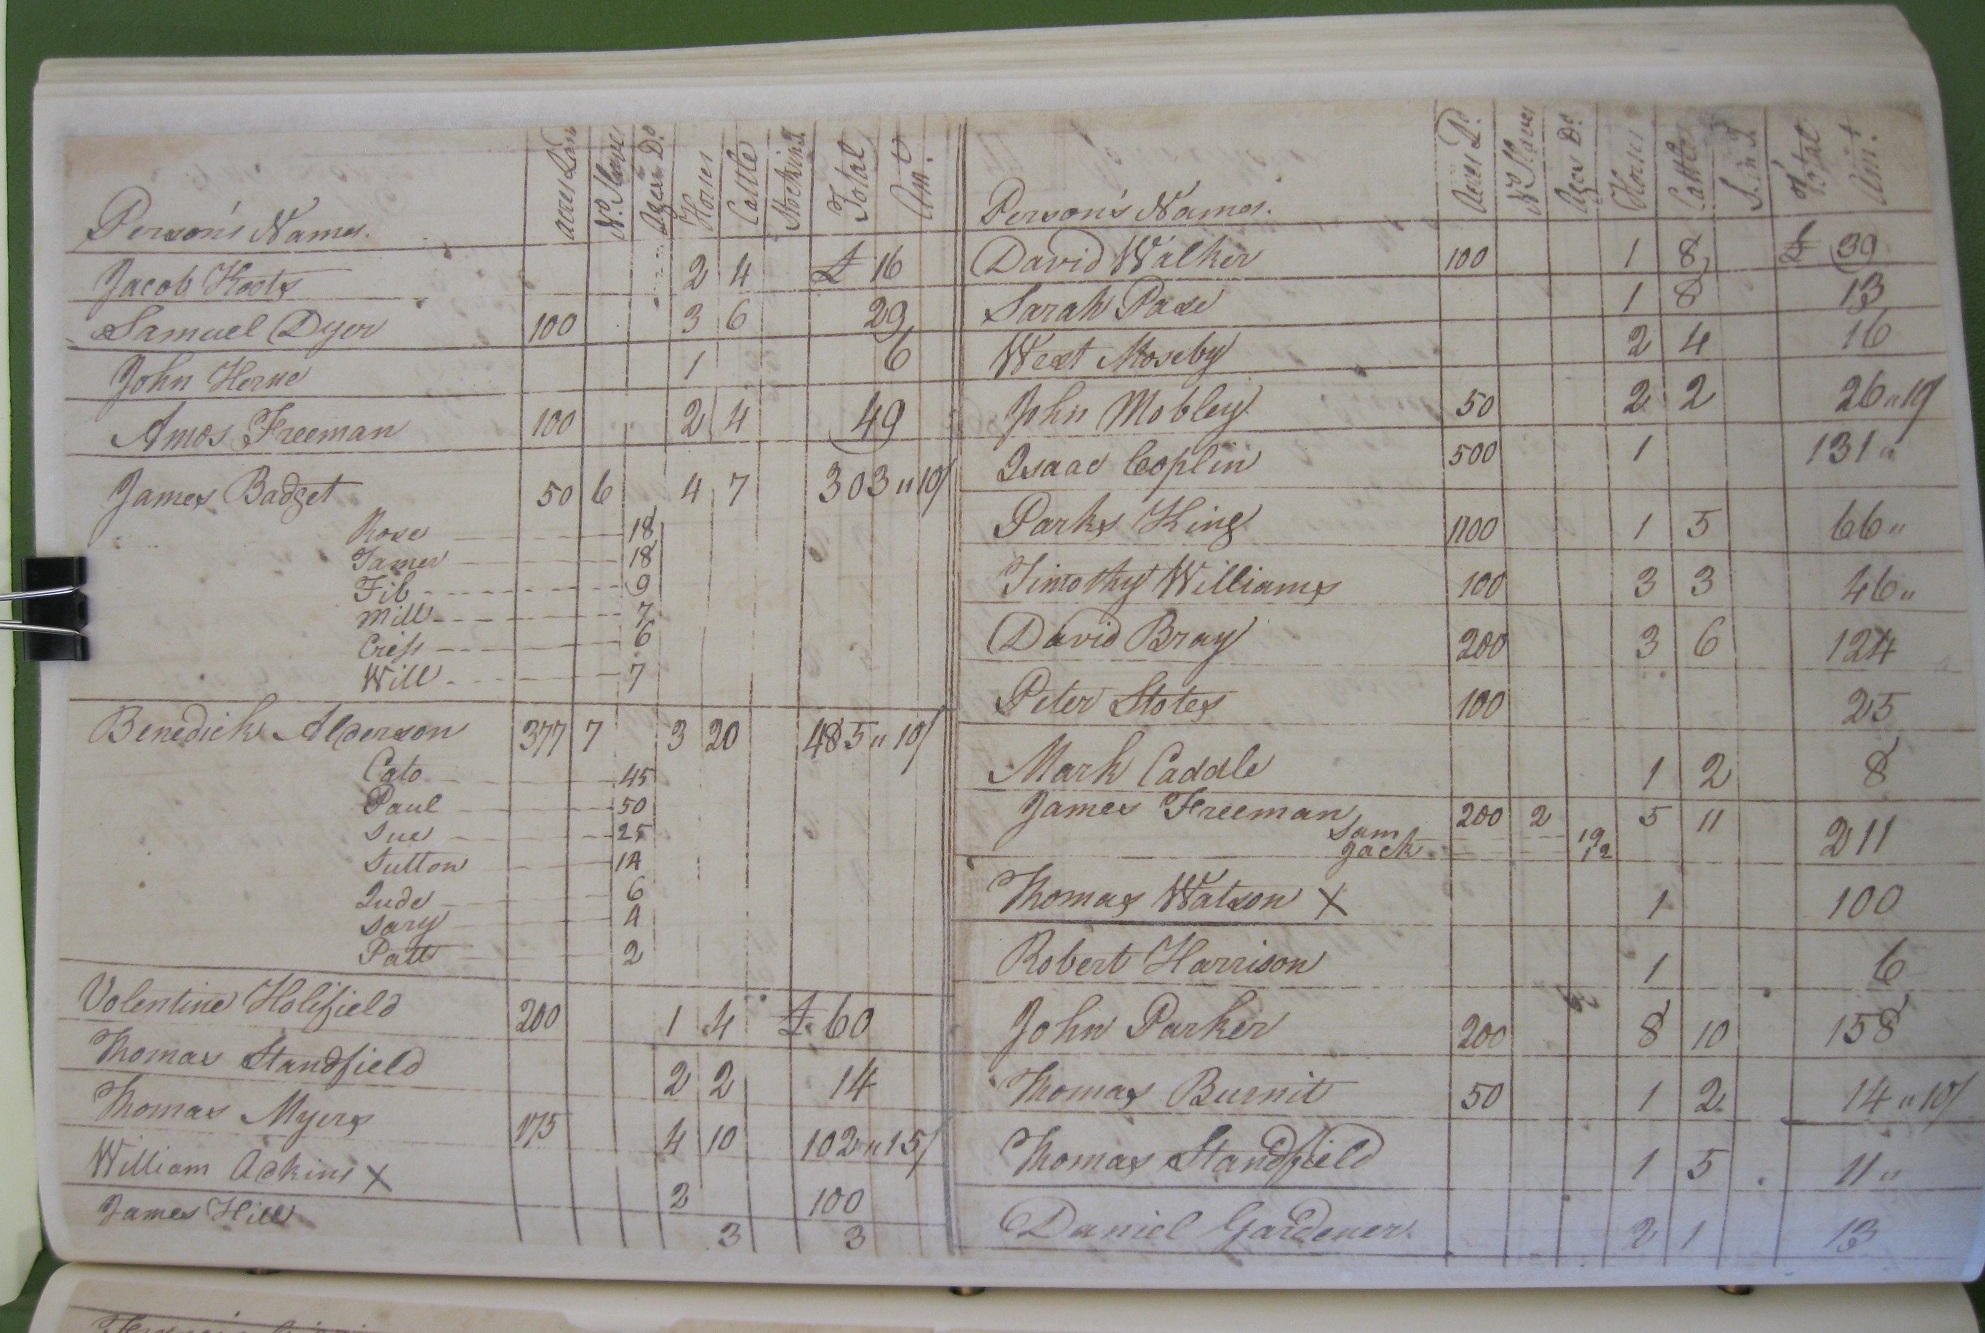 Person's Names. Acres Land No. Slaves Ages Do. Horses Cattle Total Am.t
Jacob Koots 2 4 £ 16
Samuel Dyer 100 3 6 29
John Herne 1 6
Amos Freeman 100 2 4 49
James Badget 50 6 4 7 303 " 10/
Rose 18
Tamer 18
Fib 9
Mill 7
Criss 6
Will 7
Benedick Alderson 377 7 3 20 485 " 10/
Cato 45
Paul 50
Sue 25
Sutton 14
Jude 6
Sary 4
Patt 2
Volentine Holifield 200 1 4 £ 60
Thomas Standfield 2 2 14
Thomas Myers 175 4 10 102 " 15/
William Adkins X 2 100
James Hill 3 3
Person's Names. Acres Do. No. Slaves Ages Do. Horses Cattle S. in T. Total Am.t
David Walker 100 1 8 £ 39
Sarah Pase 1 8 13
West Moseby 2 4 16
John Mobley 50 2 2 26 " 10/
Isaac Coplin 500 1 131 "
Parks King 1100 1 5 66 "
Timothy Williams 100 3 3 46 "
David Bray 200 3 6 124
Peter Stotes 100 25
Mark Caddle 1 2 8
James Freeman 200 2 5 11 211
Sam 19
Jack 12
Thomas Watson X 1 100
Robert Harrison 1 6
John Parker 200 8 10 158
Thomas Burnit 50 1 2 14 " 10/
Thomas Standfield 1 5 11 "
Daniel Gardener. 2 1 13